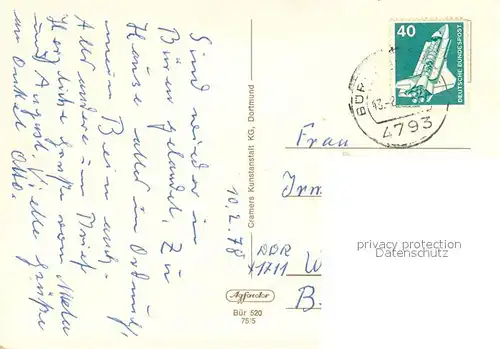 Sind wieder in
Büren gelandet. Zu
Hause alles in Ordnung,
mein Bein auch.
Alles andere im Brief
Herzliche Grüße von
und August. Viele Grüße
von Onkel Otto.
10.2.78
Cramers Kunstanstalt KG, Dortmund
Agfacolor
Bür 520
75/5
40
DEUTSCHE BUNDESPOST
BÜR
13.
4793
Frau
DDR
1711
B.
privacy protection
Datenschutz